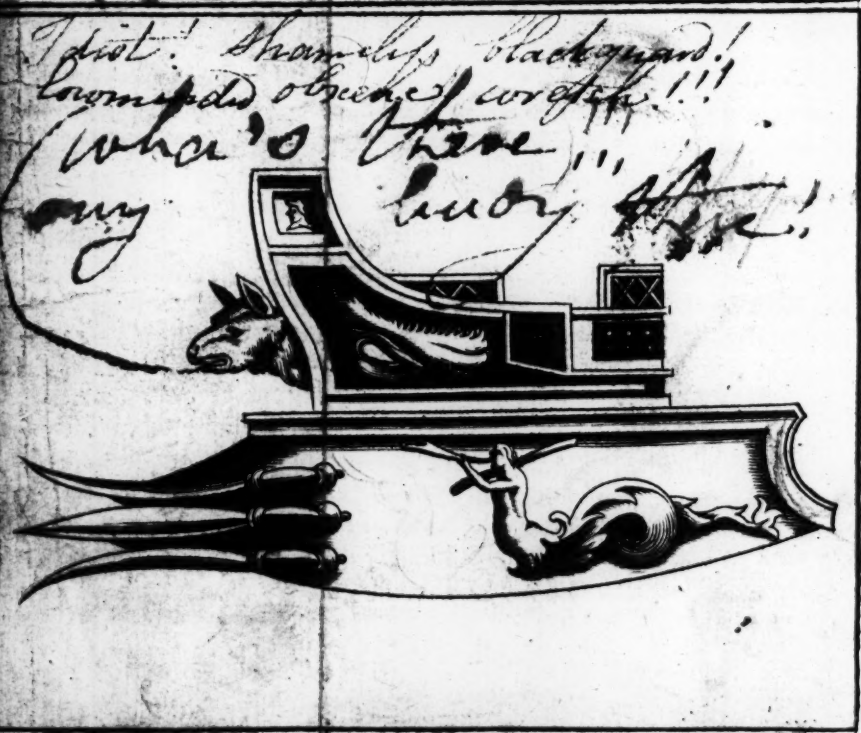 Idiot! Shameless blackguard!
lowminded obscene wretch!!!
who's there!!!
any body there!